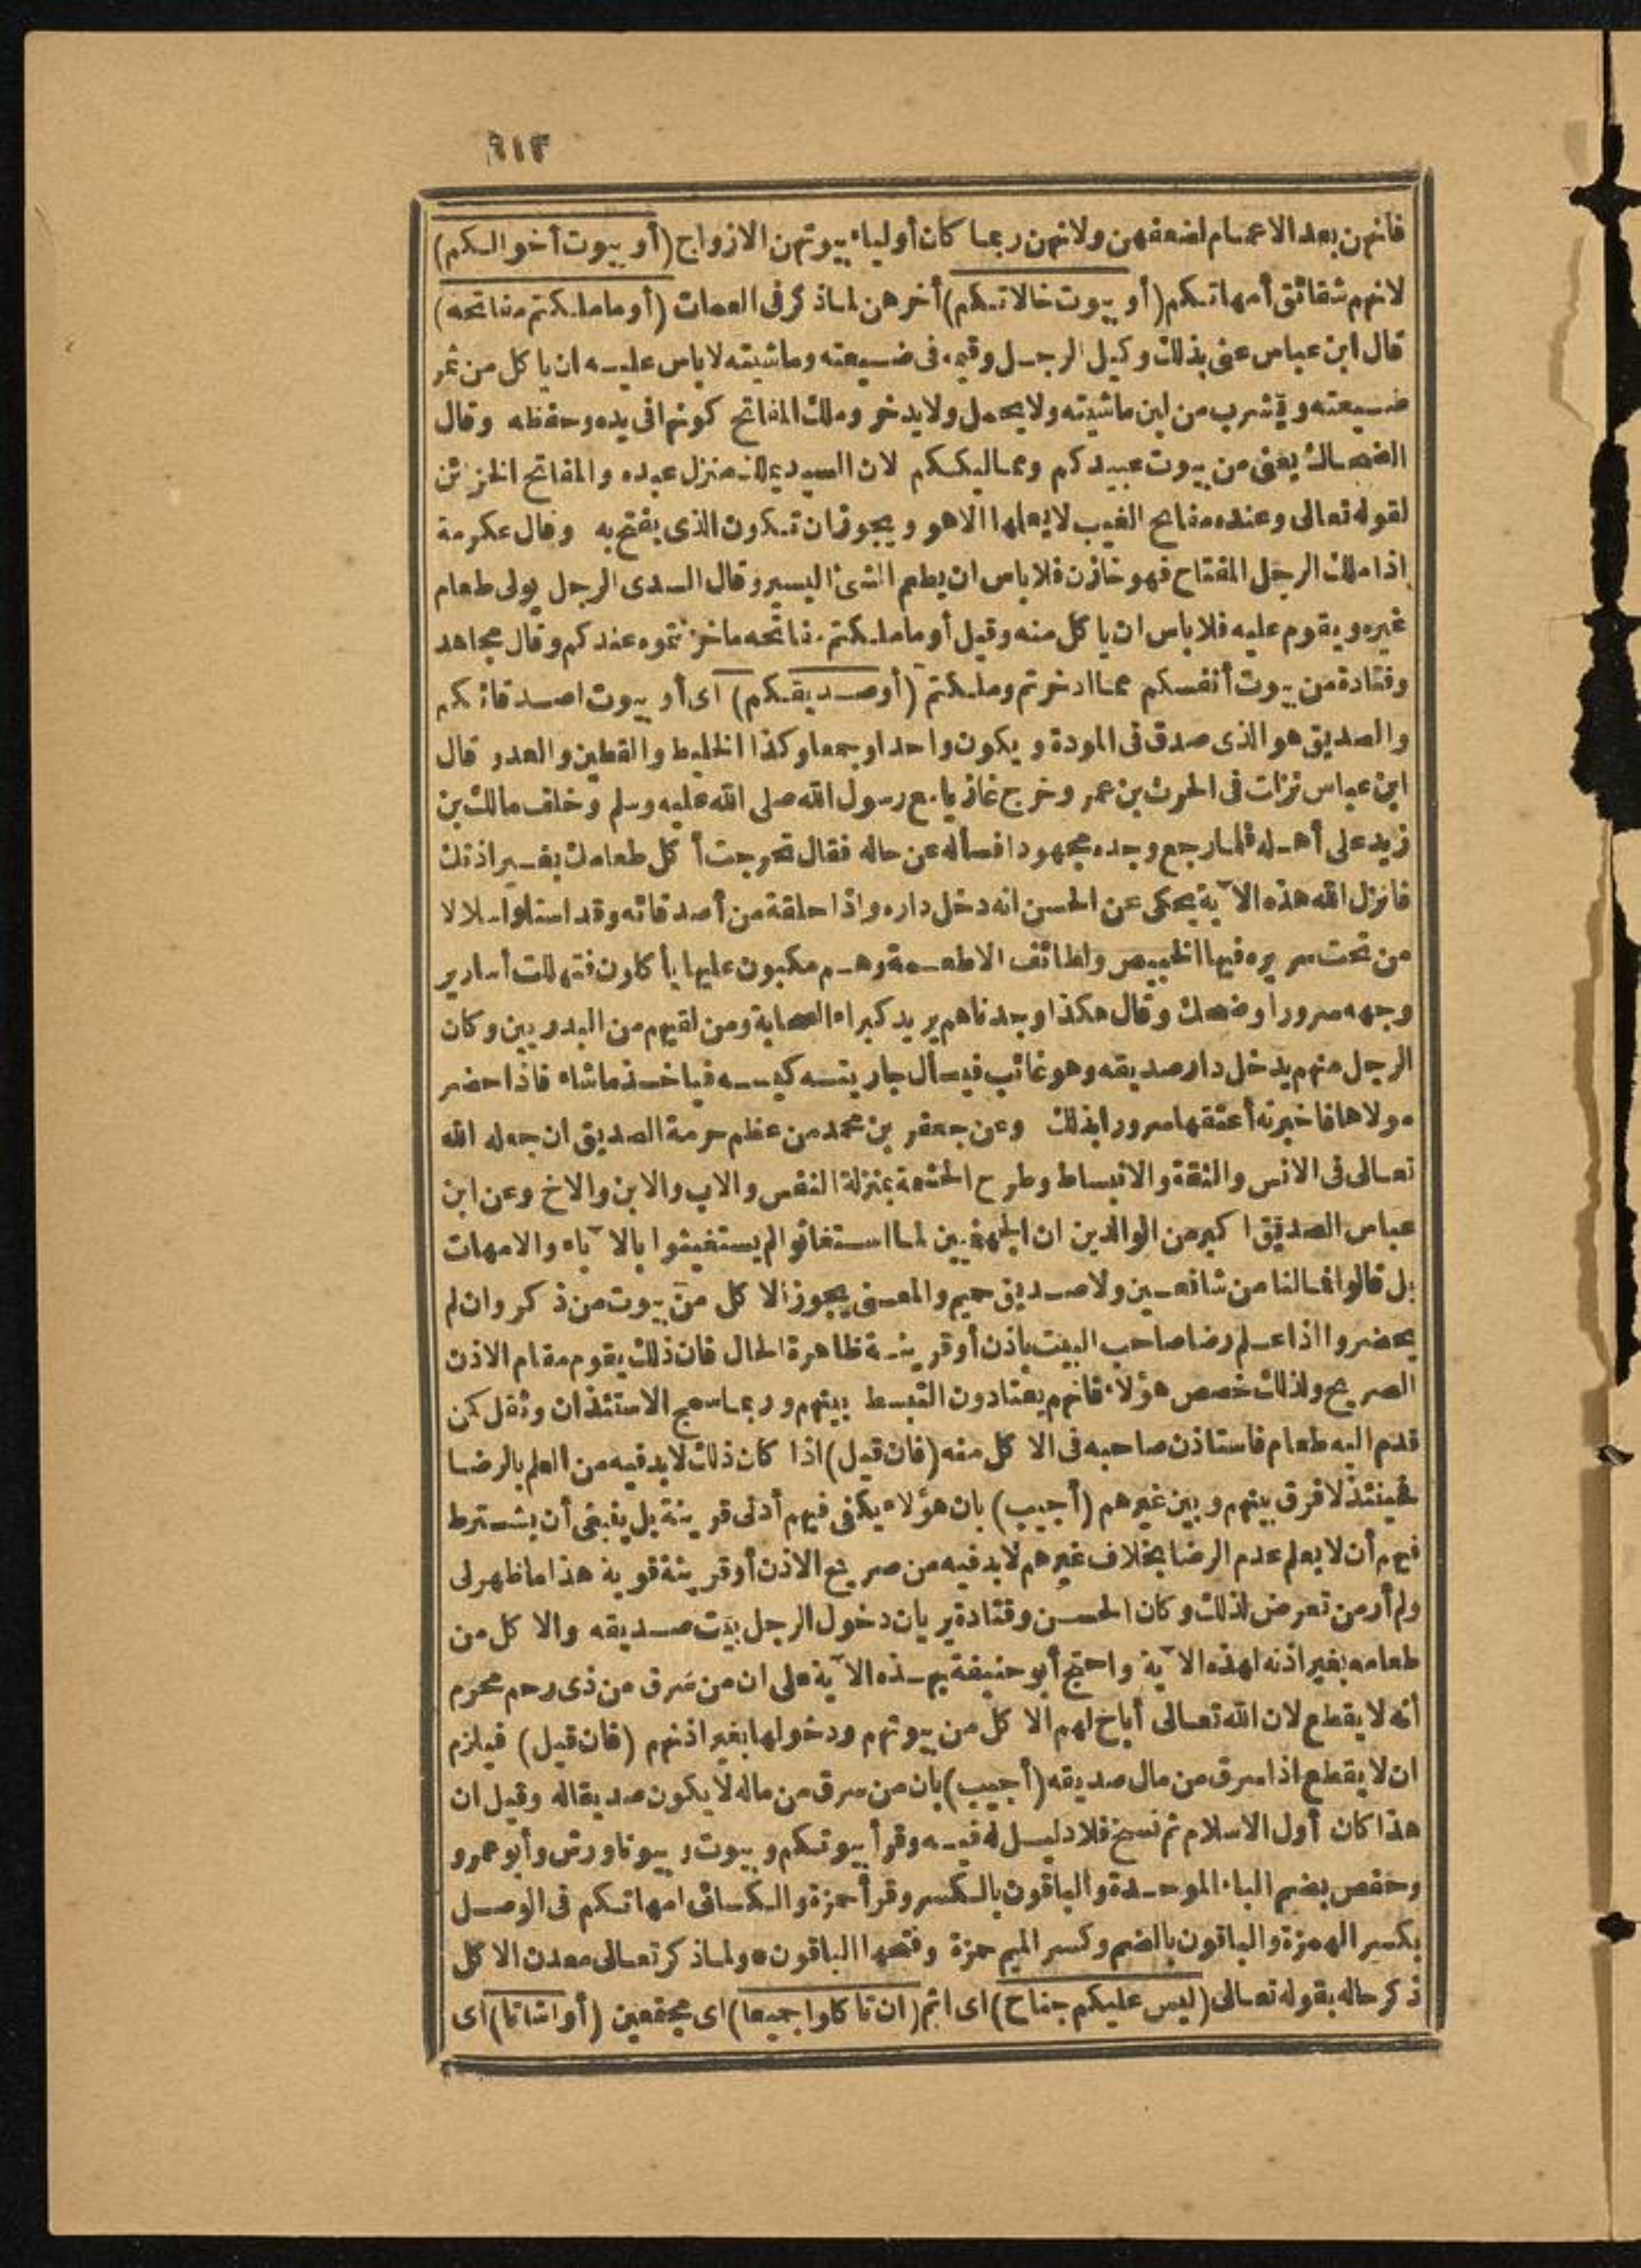 ٦١٣
فانهن بعد الاعمام لضعفهن ولانهن ربما كان أولياء بيوتهن الازواج (أو بيوت أخوالكم)
لانهم شقائق أمهاتكم (أو بيوت خالاتكم) أخرهن لماذكر فى العمات (أو ماملكتم مفاتحه)
قال ابن عباس عنى بذلك وكيل الرجل وقيمه فى ضيعته وماشيته لاباس عليه ان ياكل من ثمر
ضيعته ويشرب من لبن ماشيته ولايحمل ولايدخر وملك المفاتح كونها فى يده وحفظه وقال
الضحاك يعنى من بيوت عبيدكم ومماليككم لان السيد يملك منزل عبده والمفاتح الخزائن
لقوله تعالى وعنده مفاتح الغيب لايعلمها الاهو ويجوز ان تكون الذى يفتح به وقال عكرمة
اذا ملك الرجل المفتاح فهو خازن فلاباس ان يطعم الشئ اليسير وقال السدى الرجل يولى طعام
غيره ويقوم عليه فلاباس ان ياكل منه وقيل أو ماملكتم مفاتحه ماخزنتموه عندكم وقال مجاهد
وقتادة من بيوت أنفسكم مما ادخرتم وملكتم (أوصديقكم) اى أو بيوت اصدقائكم
والصديق هو الذى صدق فى المودة ويكون واحدا وجمعا وكذا الخليط والقطين والعدو قال
ابن عباس نزات فى الحرث بن عمر وخرج غازيا مع رسول الله صلى الله عليه وسلم وخلف مالك بن
زيد على أهله فلمارجع وجده مجهودا فسأله عن حاله فقال تحرجت أكل طعامك بغير اذنك
فانزل الله هذه الآية يحكى عن الحسن انه دخل داره واذا حلقة من أصدقائه وقد استلوا سلالا
من تحت سريره فيها الخبيص واطائف الاطعمة وهم مكبون عليها يأكلون فتهللت أسارير
وجهه سرورا وضحك وقال هكذا وجدناهم يريد كبراء الصحابة ومن لقيهم من البدريين وكان
الرجل منهم يدخل دار صديقه وهو غائب فيسأل جاريته كيسه فياخذ ماشاء فاذا حضر
مولاها فاخبرته أعتقها سرورا بذلك وعن جعفر بن محمد من عظم حرمة الصديق ان جعله الله
تعالى فى الانس والثقة والانبساط وطرح الحشمة بمنزلة النفس والاب والابن والاخ وعن ابن
عباس الصديق اكبر من الوالدين ان الجهنميين لما استغاثوا لم يستغيثوا بالآباء والامهات
بل قالوا فمالنا من شافعين ولاصديق حميم والمعنى يجوز الاكل من بيوت من ذكر وان لم
يحضروا اذا علم رضا صاحب البيت باذن أو قرينة ظاهرة الحال فان ذلك يقوم مقام الاذن
الصريح ولذلك خصص هؤلاء فانهم يعتادون التبسط بينهم وربما سمج الاستئذان وثقل كمن
قدم اليه طعام فاستاذن صاحبه فى الاكل منه (فان قيل) اذا كان ذلك لابد فيه من العلم بالرضا
فحينئذ لافرق بينهم وبين غيرهم (أجيب) بان هؤلاء يكفى فيهم أدنى قرينة بل ينبغى أن يشترط
فيهم أن لايعلم عدم الرضا بخلاف غيرهم لابد فيه من صريح الاذن أو قرينة قوية هذا ماظهرلى
ولم أر من تعرض لذلك وكان الحسن وقتادة يريان دخول الرجل بيت صديقه والاكل من
طعامه بغير اذنه لهذه الآية واحتج أبو حنيفة بهذه الآية على ان من سرق من ذى رحم محرم
أنه لا يقطع لان الله تعالى أباح لهم الاكل من بيوتهم ودخولها بغير اذنهم (فان قيل) فيلزم
ان لا يقطع اذا سرق من مال صديقه (أجيب) بان من سرق من ماله لايكون صديقاله وقيل ان
هذا كان أول الاسلام ثم نسخ فلادليل له فيه وقرأ بيوتكم وبيوت وبيوتا ورش وأبو عمرو
وحفص بضم الباء الموحدة والباقون بالكسر وقرأ حمزة والكسائى امهاتكم فى الوصل
بكسر الهمزة والباقون بالضم وكسر الميم حمزة وفتحها الباقون ٭ ولماذكر تعالى معدن الاكل
ذكر حاله بقوله تعالى (ليس عليكم جناح) اى اثم (ان تاكلوا جميعا) اى مجتمعين (أو اشتاتا) اى